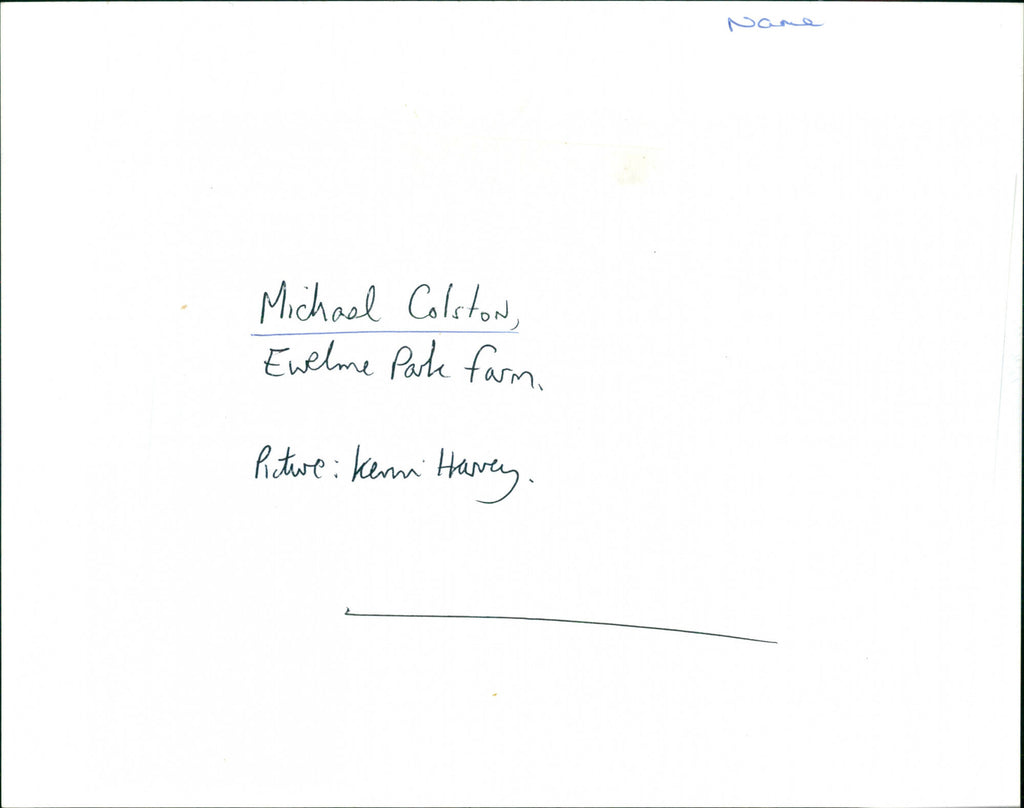 Name
Michael Colston,
Ewelme Park Farm.
Picture: Kerri Harvey.